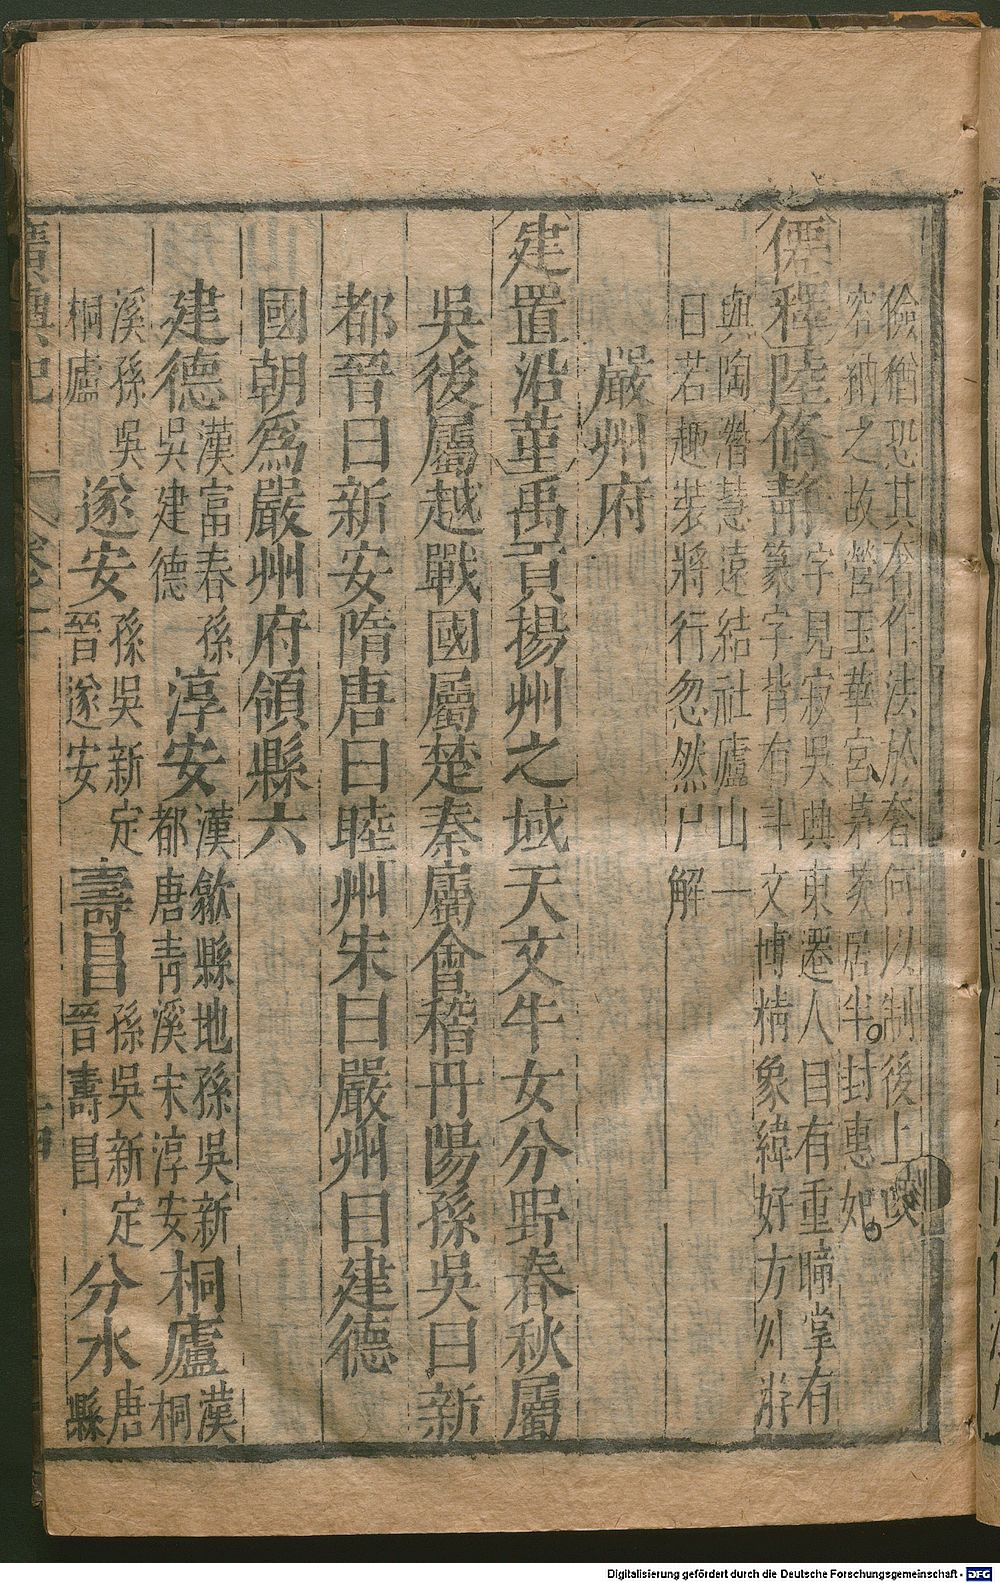 儉猶恐其奢作法於奢何以制後上
窮納之故營玉華宮茅茨居半封惠妃
僊釋陸脩靜字見寂吳興東遷人目有重瞳掌有
篆字背有斗文博精象緯好方外游
與陶潛慧遠結社廬山一
日若趣裝將行忽然尸解
嚴州府
建置沿革禹貢揚州之域天文牛女分野春秋屬
吳後屬越戰國屬楚秦屬會稽丹陽孫吳曰新
都晉曰新安隋唐曰睦州宋曰嚴州曰建德
國朝爲嚴州府領縣六
建德漢富春孫吳建德淳安漢歙縣地孫吳新都唐青溪宋淳安桐廬漢桐
溪孫吳桐廬遂安孫吳新定晉遂安壽昌孫吳新定晉壽昌分水唐縣
廣輿記 卷十
Digitalisierung gefördert durch die Deutsche Forschungsgemeinschaft - DFG